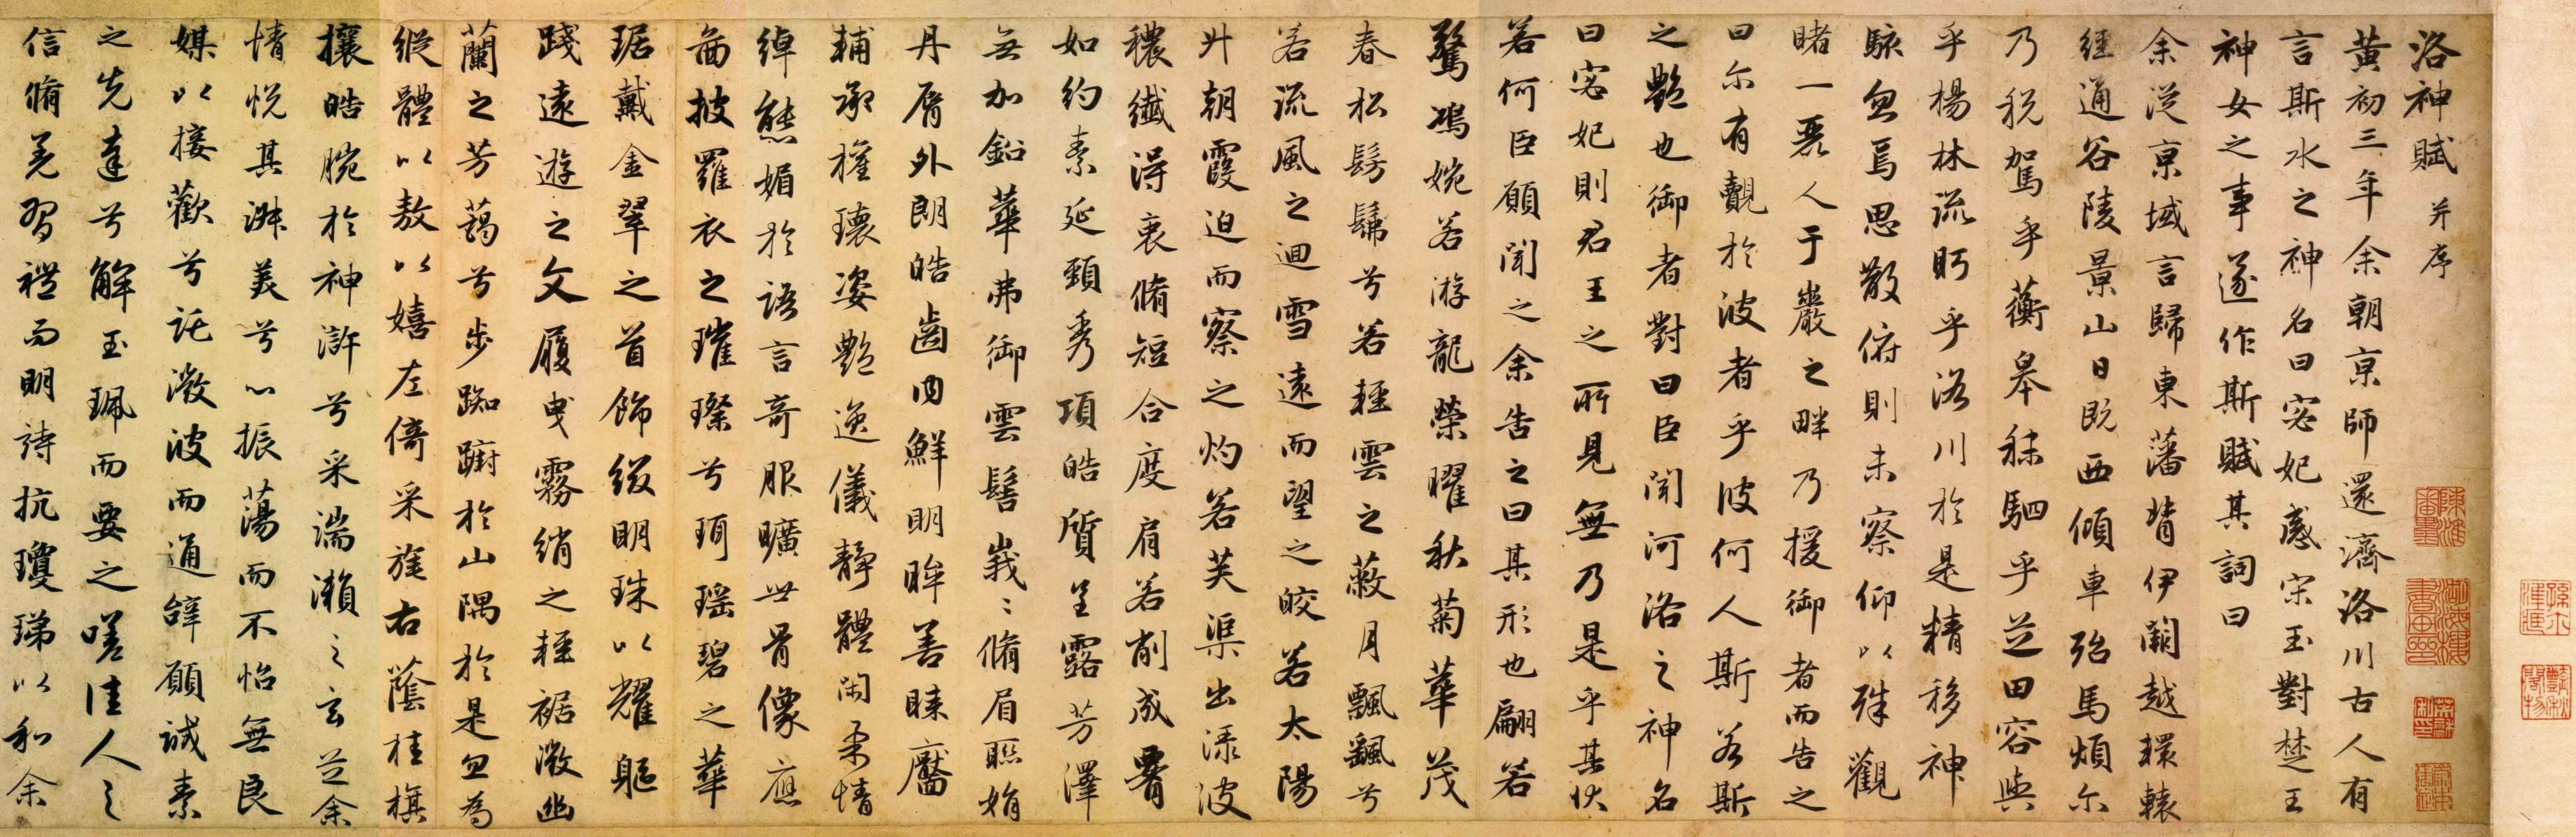 洛神賦 并序
黃初三年余朝京師還濟洛川古人有
言斯水之神名曰宓妃感宋玉對楚王
神女之事遂作斯賦其詞曰
余從京域言歸東藩背伊闕越轘轅
經通谷陵景山日既西傾車殆馬煩尒
乃稅駕乎蘅皋秣駟乎芝田容與
乎楊林流眄乎洛川於是精移神
駭忽焉思散俯則未察仰以殊觀
睹一麗人于巖之畔乃援御者而告之
曰尒有覿於彼者乎彼何人斯若斯
之豔也御者對曰臣聞河洛之神名
曰宓妃則君王之所見無乃是乎其狀
若何臣願聞之余告之曰其形也翩若
驚鴻婉若游龍榮曜秋菊華茂
春松髣髴兮若輕雲之蔽月飄颻兮
若流風之迴雪遠而望之皎若太陽
升朝霞迫而察之灼若芙渠出淥波
穠纖得衷脩短合度肩若削成腰
如約素延頸秀項皓質呈露芳澤
無加鉛華弗御雲髻峩〻脩眉聯娟
丹脣外朗皓齒內鮮明眸善睞靨
輔承權瓌姿豔逸儀靜體閑柔情
綽態媚於語言奇服曠世骨像應
圖披羅衣之璀璨兮珥瑤碧之華
琚戴金翠之首飾綴明珠以耀軀
踐遠遊之文履曳霧綃之輕裾微幽
蘭之芳藹兮步踟躕於山隅於是忽焉
縱體以敖以嬉左倚采旄右蔭桂旗
攘皓腕於神滸兮采湍瀨之玄芝余
情悅其淑美兮心振蕩而不怡無良
媒以接歡兮託微波而通辭願誠素
之先達兮解玉珮而要之嗟佳人之
信脩羌習禮而明詩抗瓊珶以和余